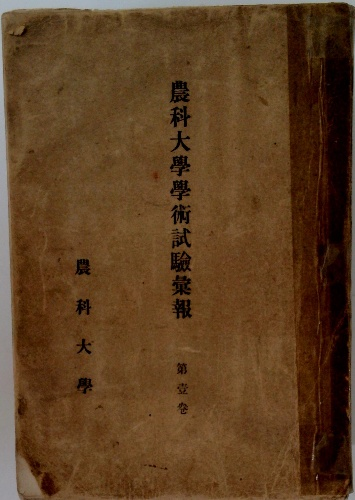 農科大學學術試驗彙報
第壹卷
農科大學